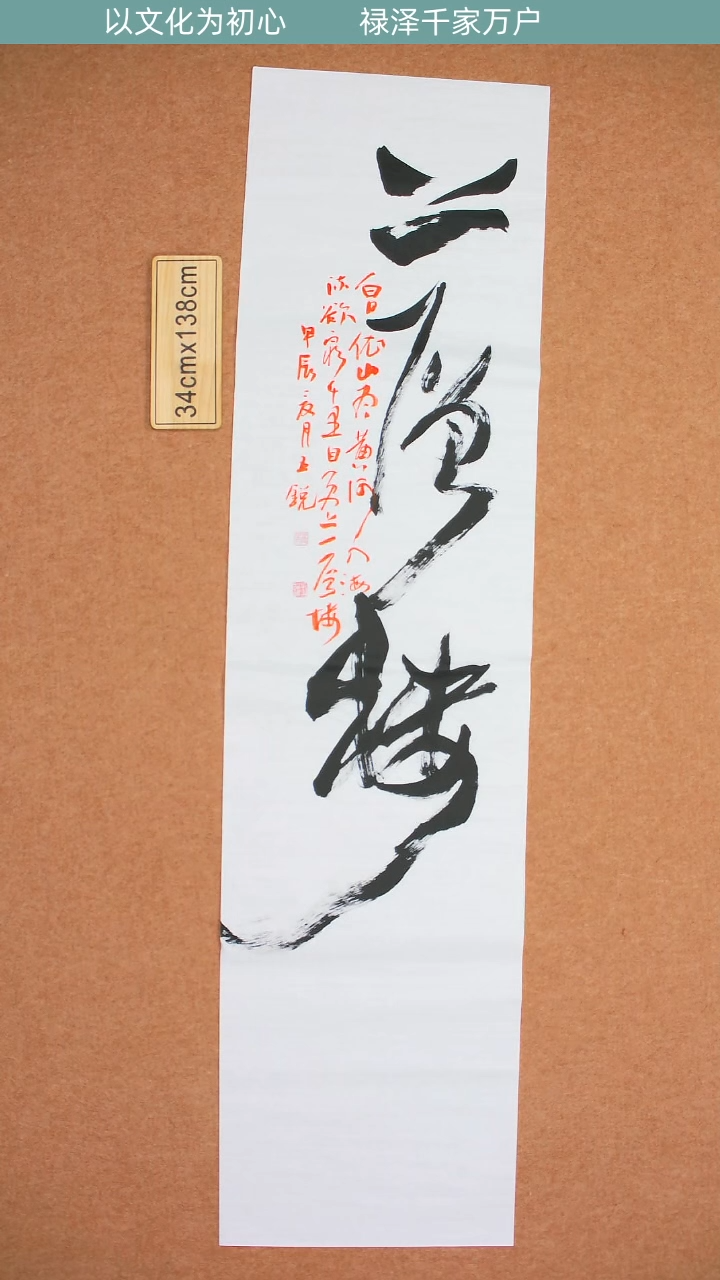 以文化为初心 禄泽千家万户
34cmx138cm
上层楼
白日依山尽黄河入海
流欲穷千里目更上一层楼
甲辰夏月王锐